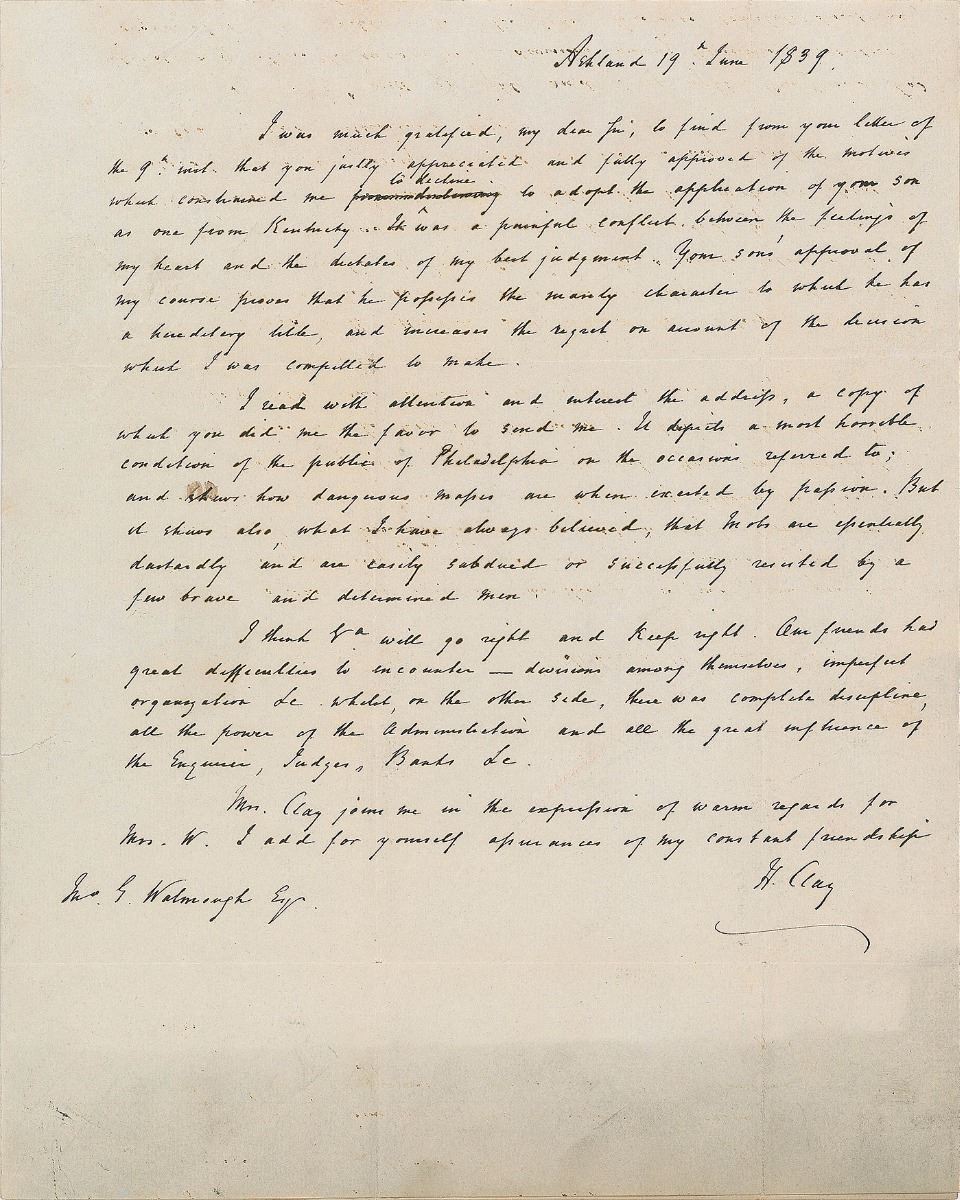 Ashland 19h June 1839.
I was much gratified, my dear Sir, to find from your letter of
the 9h inst. that you justly appreciated and fully approved of the motives
to decline
which constrained me to adopt the application of your son
as one from Kentucky. It was a painful conflict between the feelings of
my heart and the dictates of my best judgment. Your son's approval of
my course proves that he possesses the manly character to which he has
a hereditary title, and increases the regret on account of the decision
which I was compelled to make.
I read with attention and interest the address, a copy of
which you did me the favor to send me. It depicts a most horrible
condition of the public of Philadelphia on the occasions referred to;
and shews how dangerous masses are when excited by passion. But
it shews also, what I have always believed, that Mobs are essentially
dastardly and are easily subdued or successfully resisted by a
few brave and determined men.
I think Va will go right and Keep right. Our friends had
great difficulties to encounter — divisions among themselves, imperfect
organization &c whilst, on the other side, there was complete discipline,
all the power of the Administration and all the great influence of
the Enquirer, Judges, Banks &c.
Mrs. Clay joins me in the expression of warm regards for
Mrs. W. I add for yourself assurances of my constant friendship
H. Clay
Jno. G. Watmough Esqr.